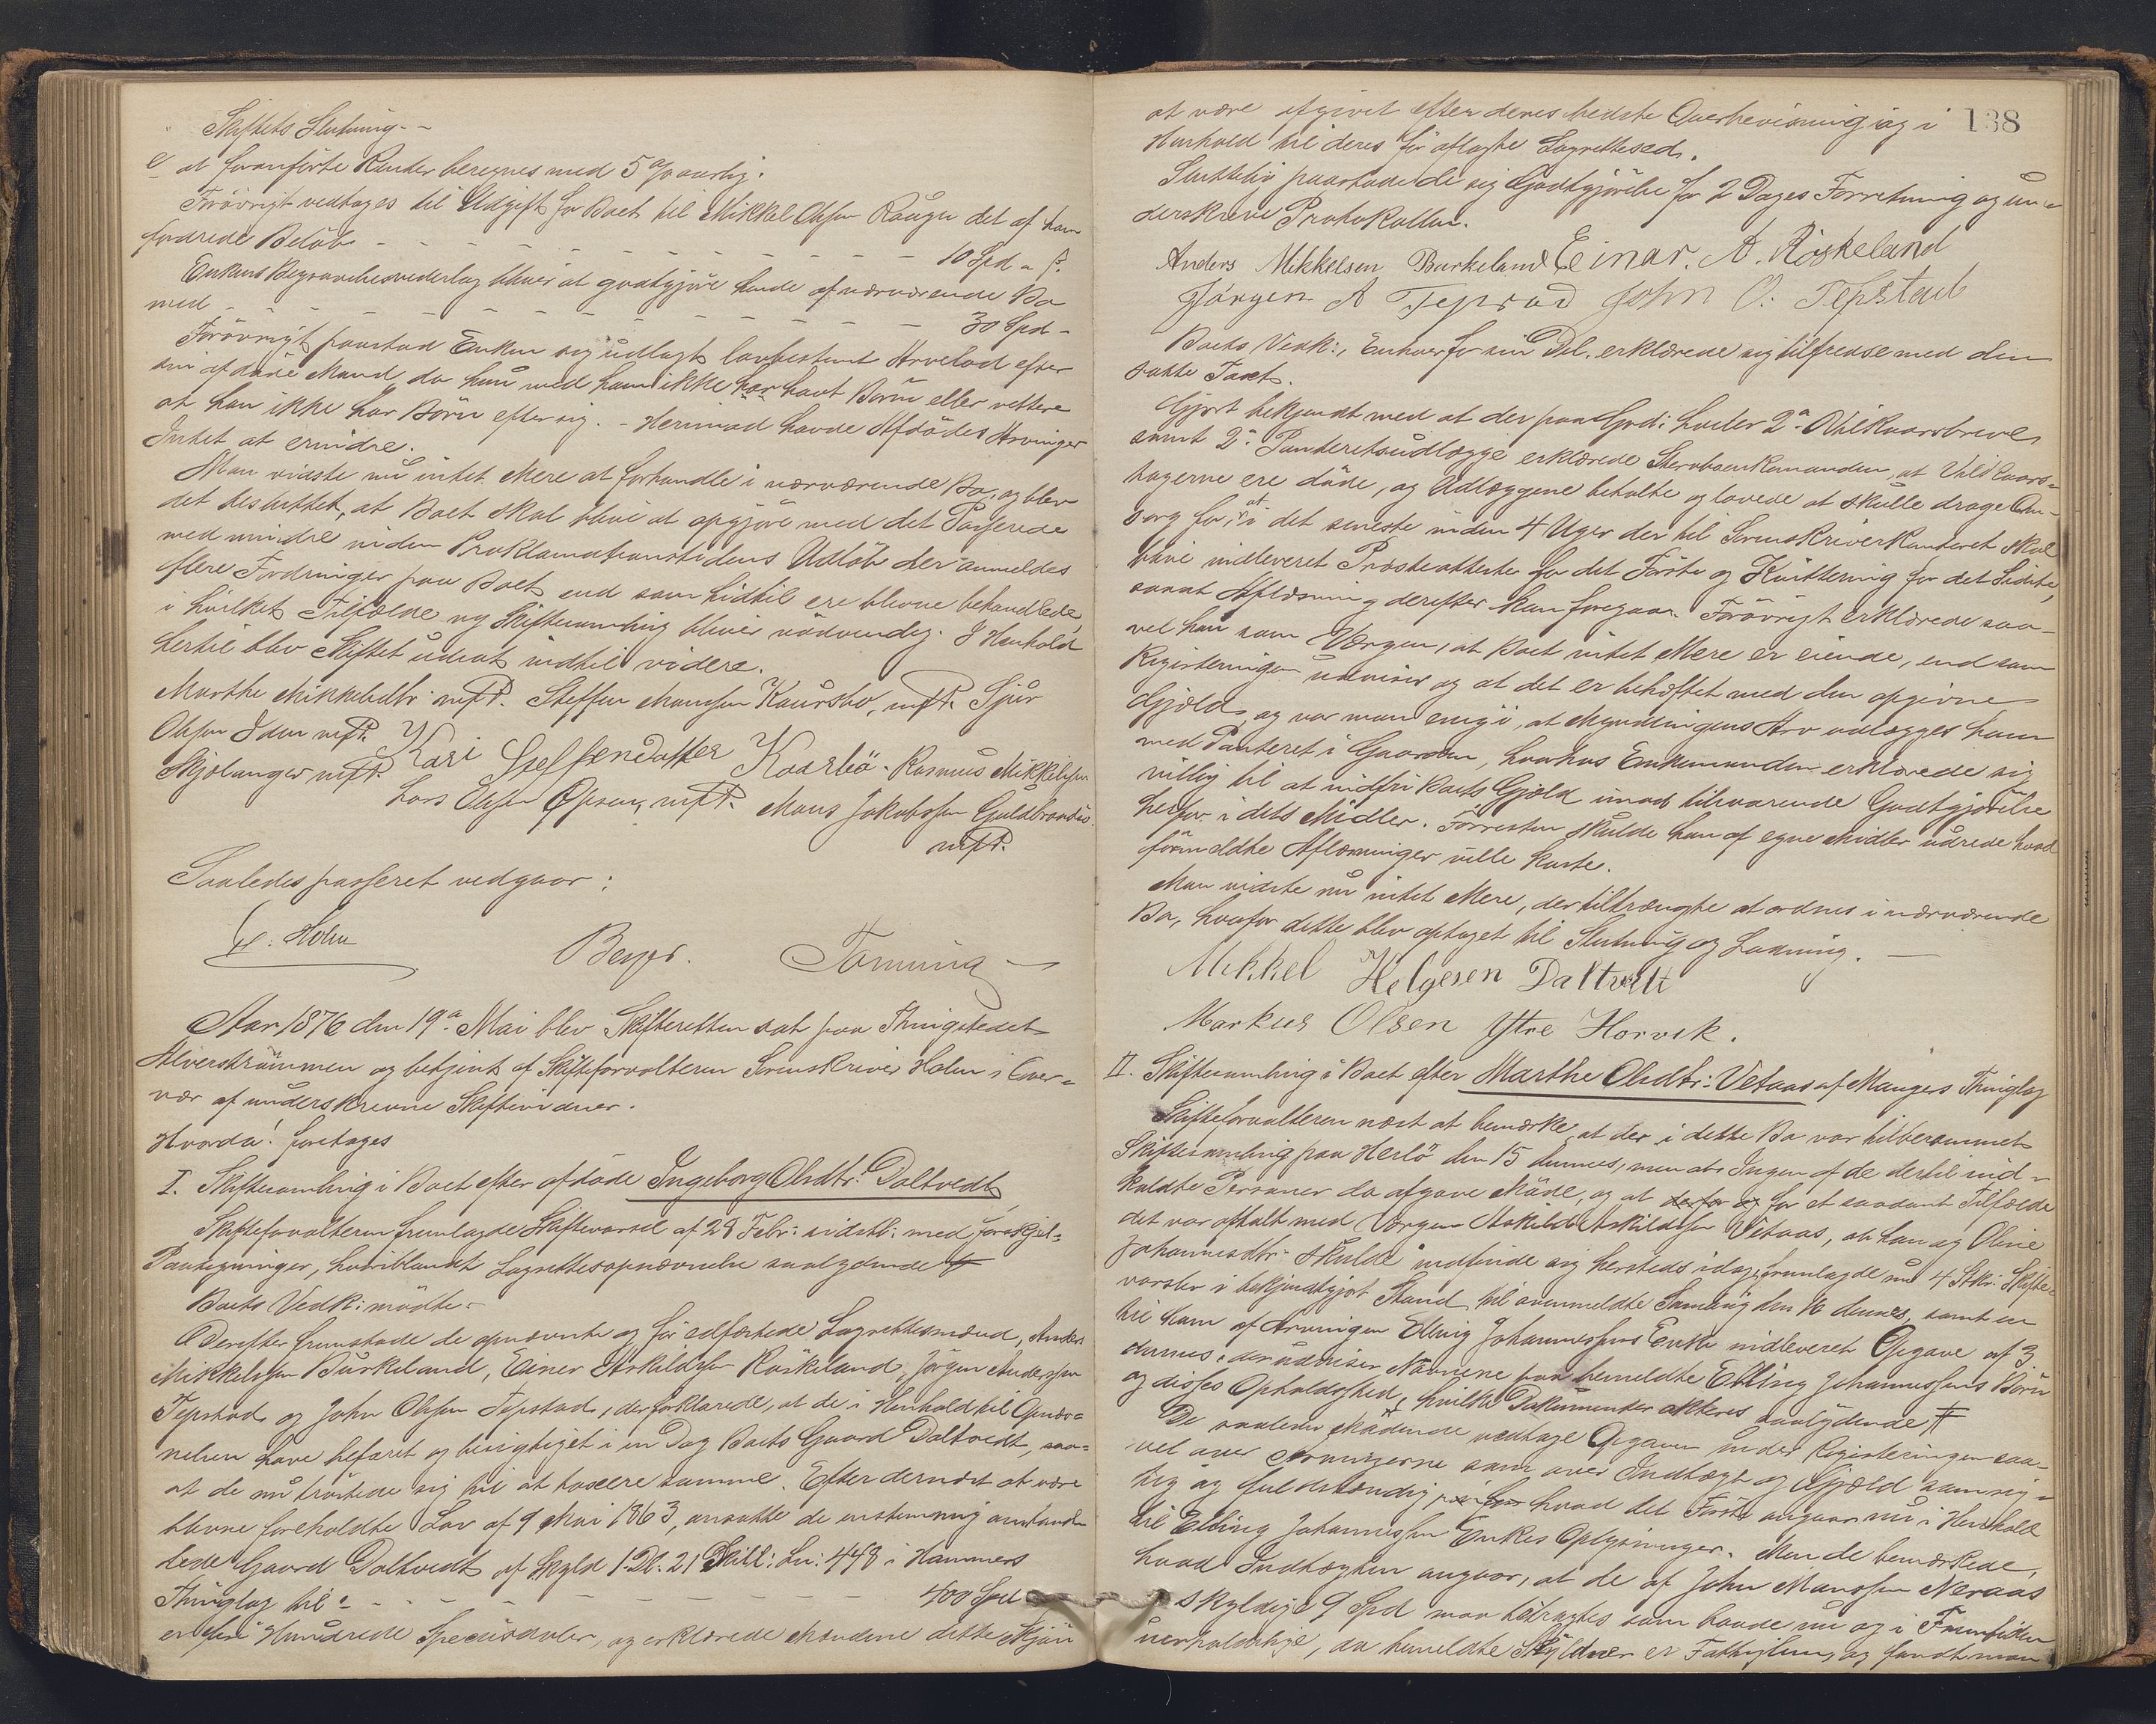 Skiftets Slutning. -
e at foranførte Renter beregnes med 5 % aarlig.
Forøvrigt vedtoges til Udgift for Boet til Mikkel Olsen det af ham
fordrede Beløb - - - - - - - - - 10 Spd
Enkens Begravelsesvederlag bliver at godtgjøre hende af nærværende Bo
med - - - - - - - - - - - 30 Spd -
Forøvrigt paastod Enken sig udlagt lovbestemt Arvelod efter
sin afdøde Mand, da hun med ham ikke har havt Børn eller rettere
at han ikke har Børn efter sig. - Herimod havde Afdødes Arvinger
Intet at erindre.
Man vidste nu intet Mere at forhandle i nærværende Bo, og blev
det besluttet, at Boet skal blive at opgjøre med det Passerede
med mindre inden Proklamationstidens Udløb der anmeldes
flere Fordringer paa Boet, end som hidtil ere blevne behandlede,
i hvilket Tilfælde ny Skiftesamling bliver nødvendig. I Henhold
hertil blev Skiftet udsat indtil videre.
Marthe Mikkelsdtr: mfP. Steffen Monsen Kaursbø, mfP. Sjur
Olsen mfP. Kari Steffensdatter Kaarbö. Rasmus Mikkelsen
Skjelanger mfP. Lars Olsen mfP. Mons Jakobsen Guldbrandsø
mfP.
Saaledes passeret vedgaar:
Holm
Beyer. Forming
Aar 1876 den 19de Mai blev Skifteretten sat paa Thingstedet
Alverstrømmen og betjent af Skifteforvalteren Sorenskriver Holm i Over-
vær af underskrevne Skiftevidner.
Hvorda! foretoges
I. Skiftesamling i Boet efter afdøde Ingeborg Olsdtr: Daltvedt
Skifteforvalteren fremlagde Skiftevarsel af 28 Febr: sidstl: med forskjel-
Paategninger, hvoriblandt Lagrettesopnævnelse saalydende #
Boets Vedk: mødte.
Derefter fremstode de opnævnte og før edfæstede Lagrettesmænd, Anders
Mikkelsen Burkeland, Einer Askildsen Røskeland, Jørgen Andersen
Tepstad og John Olsen Tepstad, der forklarede, at de i Henhold til Opnæv-
nelsen have befaret og besigtiget i en Dag Boets Gaard Daltvedt, saa-
at de nu trøstede sig til at taxere samme. Efter dernæst at være
blevne foreholdte Lov af 9 Mai 1863, ansatte de enstemmig omhand-
lede Gaard Daltvedt af Skyld 1 Dl. 21 Skill: Ln: 448 i Hammers
Thinglag til - - - - - - - - - 400 Spd
er fire Hundrede Speciedaler, og erklærede Mændene dette Skjøn
138
at være afgivet efter deres bedste Overbevisning og i
Henhold til deres før aflagte Lagrettesed.
Sluttelig paastode de sig Godtgjørelse for 2 Dages Forretning og un-
derskreve Protokollen.
Anders Mikkelsen Burkeland Einar. A. Röskeland
Jörgen A Tepstad John O. Tepstad
Boets Vedk:, Enhver for sin Del, erklærede sig tilfredse med den
satte Taxt.
Gjort bekjendt med at der paa Grd: hviler 2de Vilkaarsbreve
samt 2de Panteretsudlægge erklærede Sterbsenkemanden, at Vilkaars-
tagerne ere døde, og Udlæggene betalte og lovede at skulle drage Om-
sorg for, at i det seneste inden 4 Uger der til Sorenskriverkontoret skal
blive indleveret Præsteattester for det Første og Kvittering for det Sidste,
samt Aflæsning derefter kan foregaa. Forøvrigt erklærede saa-
vel han som Værgen, at Boet intet Mere er eiende, end som
Registreringen udviser og at det er behæftet med den opgivne
Gjæld, og var man enig i, at Myndlingens Arv udlægges ham
med Panteret i Gaarden, hvorhos Enkemanden erklærede sig
villig til at indfri Boets Gjæld imod tilsvarende Godtgjørelse
herfor i dets Midler. Forresten skulde han af egne Midler udrede hvad
førmeldte Aflæsninger ville koste.
Man vidste nu intet Mere, der tiltrængte at ordnes i nærværende
Bo, hvorfor dette blev optaget til Slutning og Lodning. -
Mikkel Helgesen Daltvett
Markus Olsen Ytre Horvik.
II. Skiftesamling i Boet efter Marthe Olsdtr: Vetaas af Mangers Thinglag
Skifteforvalteren næst at bemærke, at der i dette Bo var tilberammet
Skiftesamling paa Herlø den 15 dennes, men at Ingen af de dertil ind-
kaldte Personer da afgave Møde, og at for et saadant Tilfælde
det var aftalt med Værgen Askild Askildsen Vetaas, at han og Oline
Johannesdtr: skulde indfinde sig hersteds idag, fremlagde nu 4 Stkr: Skifte-
varsler i bekjendtgjort Stand til ovenmeldte Samling den 16 dennes, samt en
til ham af Arvingen Elling Johannessens Enke indleveret Opgave af 3
dennes, der udviser Navnene paa bemeldte Elling Johannessens Børn
og disses Opholdssted, hvilke Dokumenter akteres saalydende #
De saaledes Mødende vedtoge Opgaven under Registreringen saa-
vel over Arvingerne som over Indtægt og Gjæld som rig-
tig og fuldstændig hvad det Første angaar nu i Henhold
til Elling Johannessens Enkes Oplysninger. Men de bemærkede,
hvad Indtægten angaar, at de af John Monssen Neraas
skyldige 9 Spd maa betragtes som baade nu og i Fremtiden
uerholdelige, da bemeldte Skyldner er Fattiglem, og fandt man